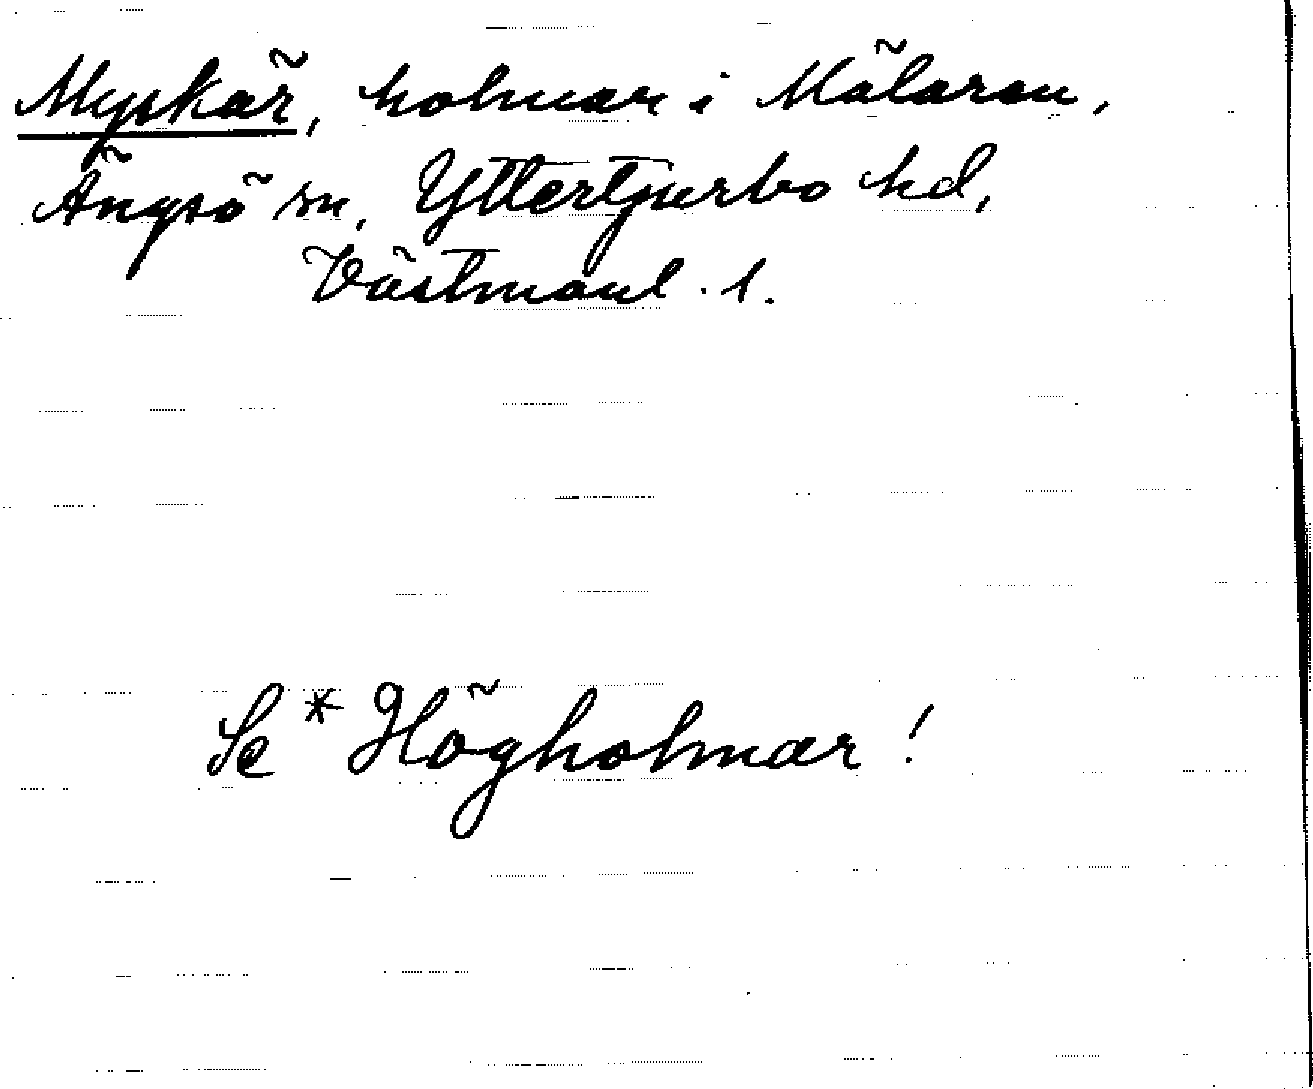 Myskär, holmar i Mälaren,
Ängsö sn, Yttertjurbo hd,
Västmanl. l.
Se *Högholmar!